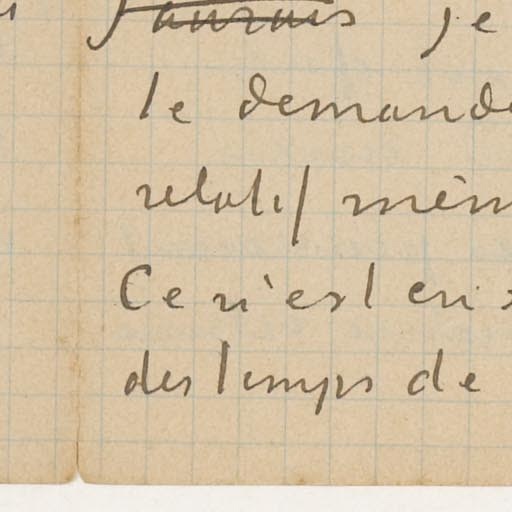 je
le demande
relatif mêm
Ce n'est en s
des temps de